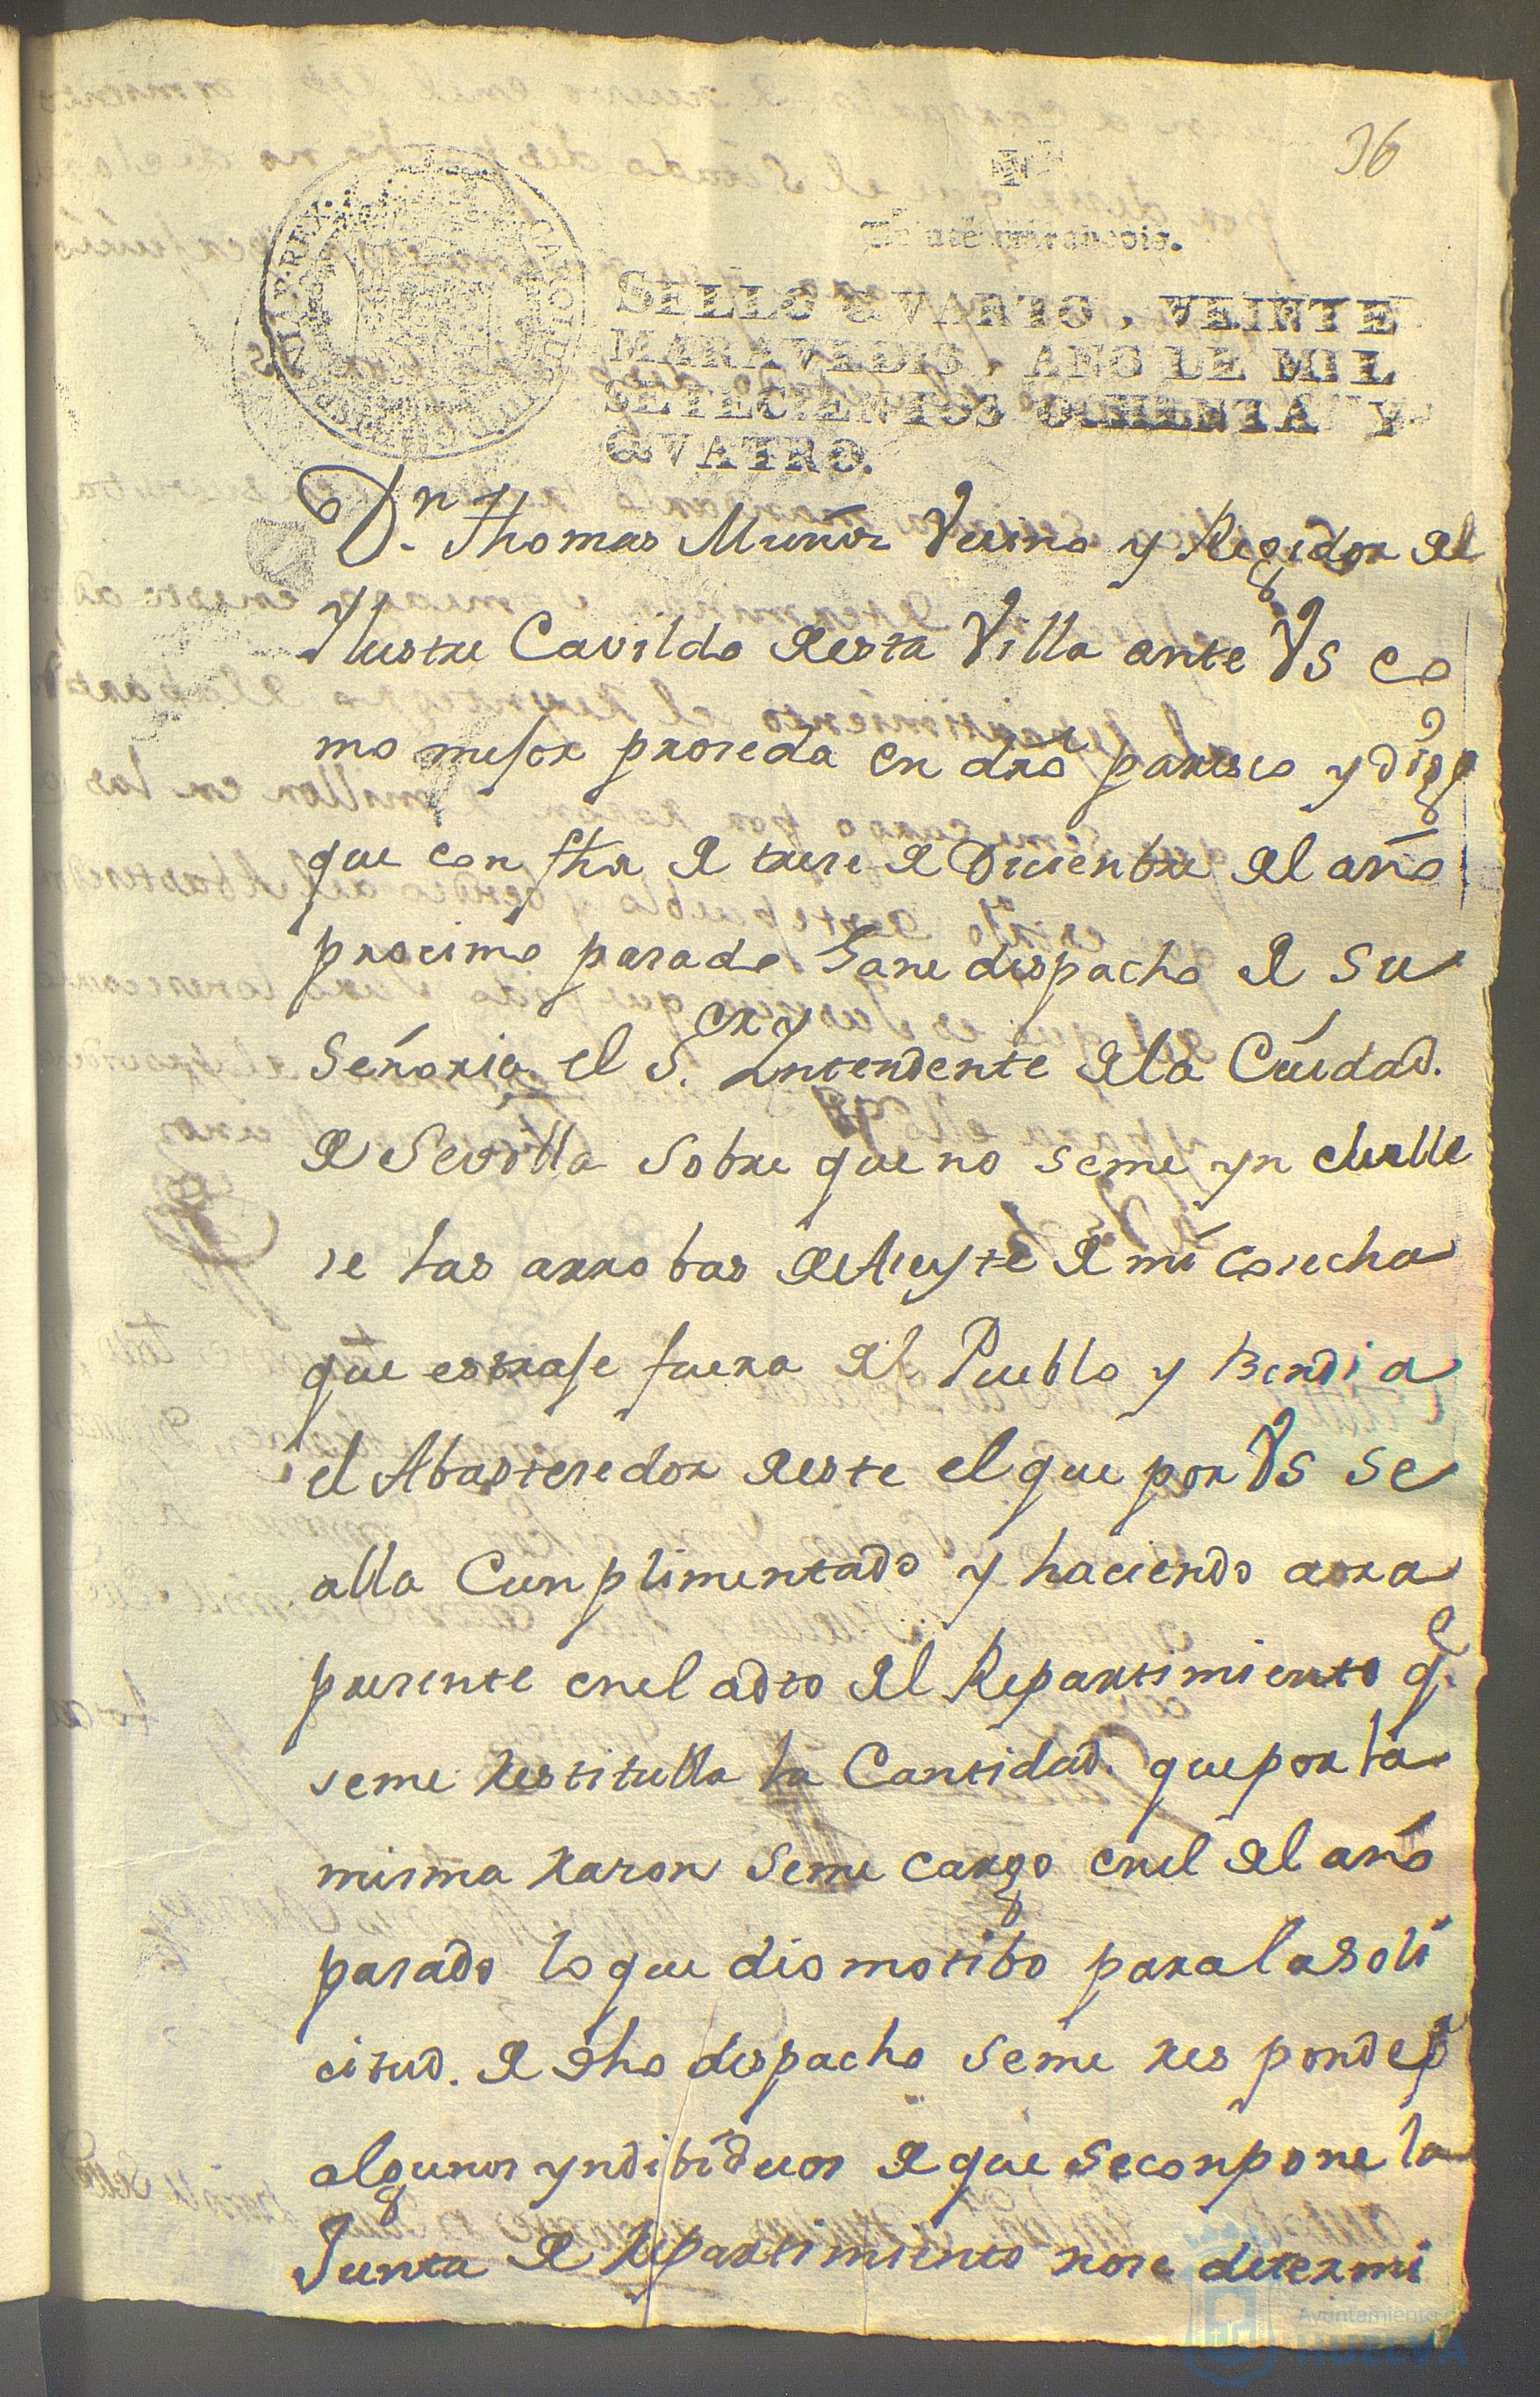 36
Veinte maravedis.
SELLO QVARTO, VEINTE
MARAVEDIS, AÑO DE MIL
SETECIENTOS OCHENTA Y
QVATRO.
Dn. Thomas Muñoz Vecino y Regidor del
Ylustre Cavildo desta Villa ante VS co
mo mejor proceda en dro paresco y digo
que con fha de trece de Diciembre del año
procimo pasado Gane despacho de su
Señoria el S.or Yntendente dela Ciudad.
de Sevilla sobre que no seme yn clulle
se las arrobas de Aceyte de mi cosecha
que estraje fuera del Pueblo y Bendi a
el Abastesedor deste el que por VS se
alla Cunplimentado y haciendo aora
presente enel acto del Repartimiento q.e
seme Restitulla la Cantidad. que por la
misma rason seme cargo enel del año
pasado lo que dio motibo para la soli
citud. de dho despacho seme res ponde p.r
algunos yndibiduos de que seconpone la
Junta de Repartimiento nose determi
Ayuntamiento de
HUELVA